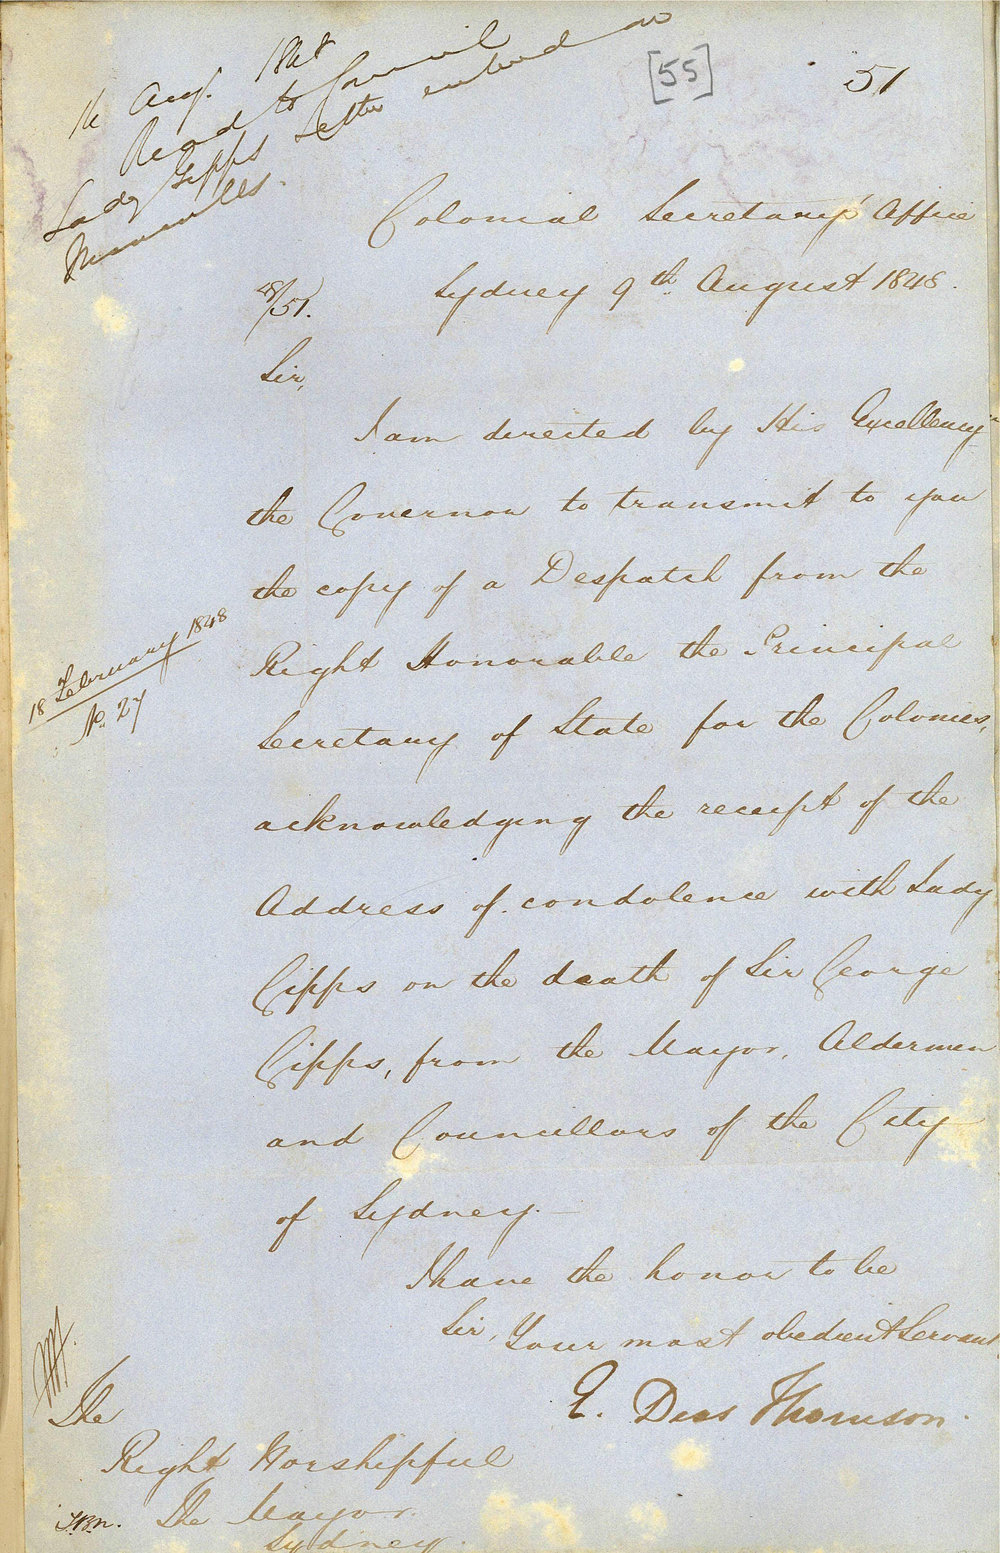 16 Augt. 1848
Read to Council
Lady Gipps Letter entered on
Minutes.
[55]
51
Colonial Secretary's Office
Sydney 9th. August 1848.
48/51.
Sir,
I am directed by His Excellency
the Governor to transmit to you
the copy of a Despatch from the
18 February 1848
No. 27
Right Honorable the Principal
Secretary of State for the Colonies,
acknowledging the receipt of the
Address of condolence with Lady
Gipps on the death of Sir George
Gipps, from the Mayor, Aldermen
and Councillors of the City
of Sydney.—
I have the honor to be
Sir, Your most obedient Servant
E. Deas Thomson.
The
Right Worshipful
The Mayor.
Sydney.